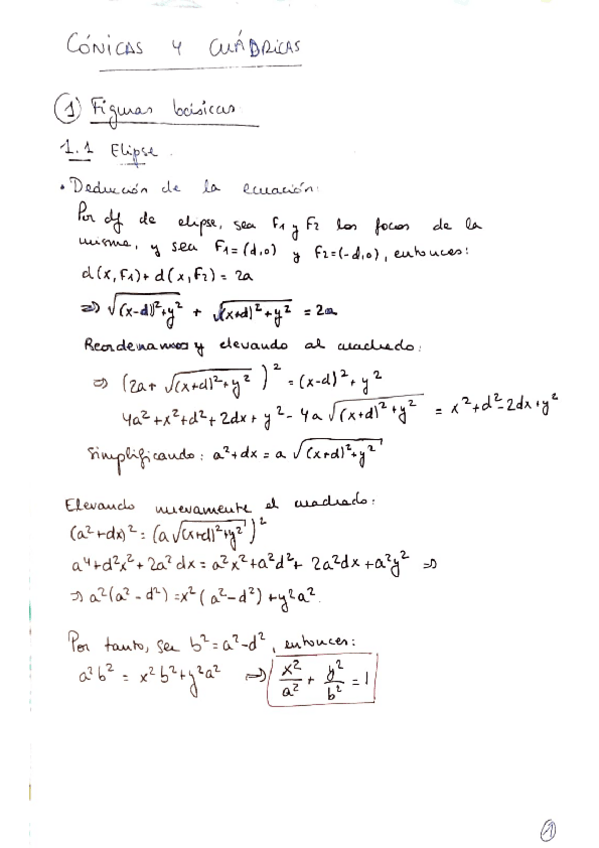 CÓNICAS Y CUÁDRICAS
① Figuras básicas
1.1 Elipse.
• Deducción de la ecuación:
Por df de elipse, sea F1 y F2 los focos de la
misma, y sea F1=(d,0) y F2=(-d,0), entonces:
d(x,F1)+d(x,F2)=2a
=> √((x-d)²+y²) + √((x+d)²+y²) = 2a
Reordenamos y elevando al cuadrado:
=> (2a+ √((x+d)²+y²))² = (x-d)²+y²
4a²+x²+d²+2dx+y²-4a√((x+d)²+y²) = x²+d²-2dx+y²
Simplificando: a²+dx = a √((x+d)²+y²)
Elevando nuevamente al cuadrado:
(a²+dx)² = (a√((x+d)²+y²))²
a⁴+d²x²+2a²dx = a²x²+a²d²+2a²dx+a²y² =>
=> a²(a²-d²) = x²(a²-d²)+y²a².
Por tanto, sea b²=a²-d², entonces:
a²b² = x²b²+y²a² => x²/a² + y²/b² = 1
①